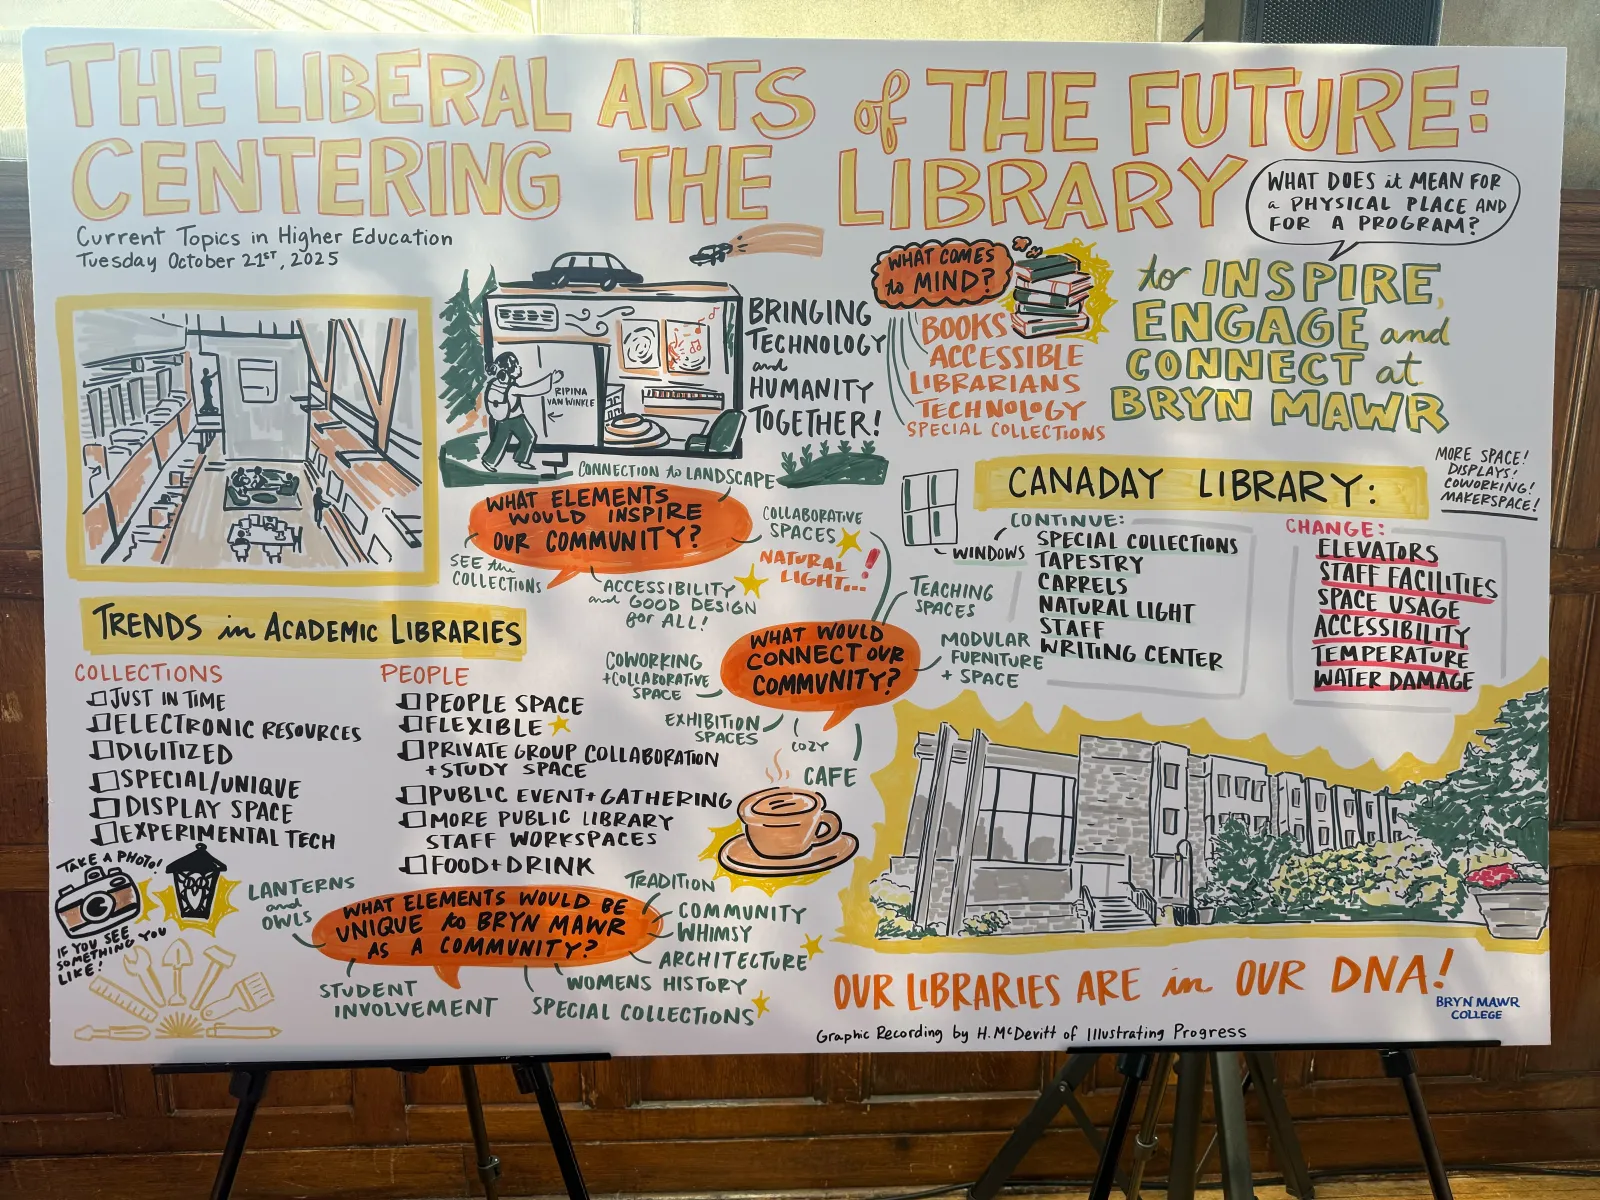 THE LIBERAL ARTS of THE FUTURE:
CENTERING THE LIBRARY
WHAT DOES it MEAN FOR
a PHYSICAL PLACE AND
FOR A PROGRAM?
Current Topics in Higher Education
Tuesday October 21ST, 2025
to INSPIRE,
ENGAGE and
CONNECT at
BRYN MAWR
RIPINA
VAN WINKLE
BRINGING
TECHNOLOGY
and
HUMANITY
TOGETHER!
WHAT COMES
to MIND?
BOOKS
ACCESSIBLE
LIBRARIANS
TECHNOLOGY
SPECIAL COLLECTIONS
CONNECTION to LANDSCAPE
WHAT ELEMENTS
WOULD INSPIRE
OUR COMMUNITY?
SEE the
COLLECTIONS
ACCESSIBILITY
and GOOD DESIGN
for ALL!
COLLABORATIVE
SPACES
NATURAL
LIGHT...!
WHAT WOULD
CONNECT OUR
COMMUNITY?
TEACHING
SPACES
MODULAR
FURNITURE
+ SPACE
COWORKING
+COLLABORATIVE
SPACE
EXHIBITION
SPACES
COZY
CAFE
CANADAY LIBRARY:
MORE SPACE!
DISPLAYS!
COWORKING!
MAKERSPACE!
WINDOWS
CONTINUE:
SPECIAL COLLECTIONS
TAPESTRY
CARRELS
NATURAL LIGHT
STAFF
WRITING CENTER
CHANGE:
ELEVATORS
STAFF FACILITIES
SPACE USAGE
ACCESSIBILITY
TEMPERATURE
WATER DAMAGE
TRENDS in ACADEMIC LIBRARIES
COLLECTIONS
JUST IN TIME
ELECTRONIC RESOURCES
DIGITIZED
SPECIAL/UNIQUE
DISPLAY SPACE
EXPERIMENTAL TECH
PEOPLE
PEOPLE SPACE
FLEXIBLE
PRIVATE GROUP COLLABORATION
+STUDY SPACE
PUBLIC EVENT+GATHERING
MORE PUBLIC LIBRARY
STAFF WORKSPACES
FOOD+DRINK
TAKE A PHOTO!
IF YOU SEE
SOMETHING YOU
LIKE!
LANTERNS
and
OWLS
WHAT ELEMENTS WOULD BE
UNIQUE to BRYN MAWR
AS A COMMUNITY?
TRADITION
COMMUNITY
WHIMSY
ARCHITECTURE
WOMENS HISTORY
SPECIAL COLLECTIONS
STUDENT
INVOLVEMENT
OUR LIBRARIES ARE in OUR DNA!
BRYN MAWR
COLLEGE
Graphic Recording by H.McDevitt of Illustrating Progress